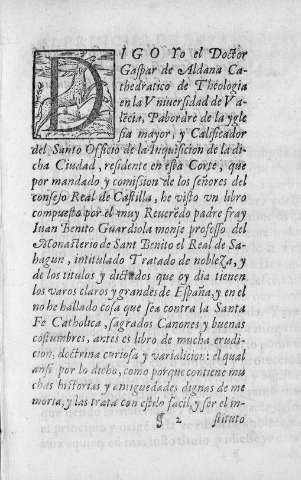 DIGO Yo el Doctor
Gaspar de Aldana Ca-
thedratico de Theologia
en la Vniuersidad de Va-
lẽcia, Pabordre de la ygle
sia mayor, y Calificador
del Santo Officio de la Inquisicion de la di-
cha Ciudad, residente en esta Corte, que
por mandado y comision de los señores del
consejo Real de Castilla, he visto vn libro
compuesto por el muy Reuerẽdo padre fray
Iuan Benito Guardiola monje professo del
Monasterio de Sant Benito el Real de Sa-
hagun, intitulado Tratado de nobleza, y
de los titulos y dictados que oy dia tienen
los varos claros y grandes de España, y en el
no he hallado cosa que sea contra la Santa
Fe Catholica, sagrados Canones y buenas
costumbres, antes es libro de mucha erudi-
cion, doctrina curiosa y varia licion: el qual
ansi por lo dicho, como porque contiene mu
chas historias y antiguedades dignas de me
moria, y las trata con estilo facil, y ser el in-
¶ 2 stituto